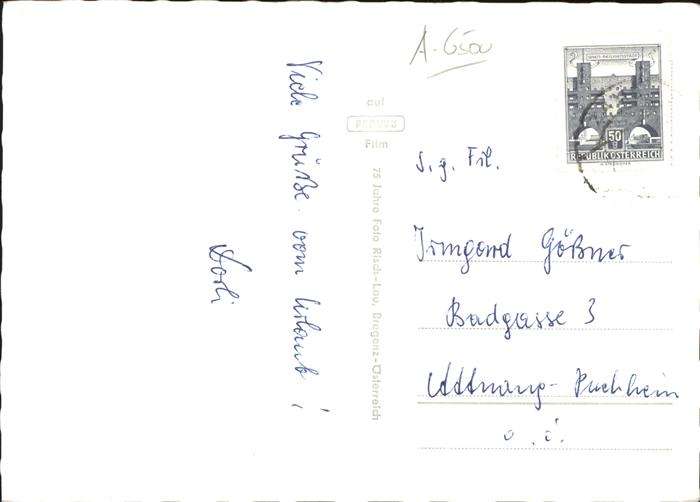 Viele Grüße vom Urlaub!
Dorli
auf
PERUTZ
Film
75 Jahre Foto Risch-Lau, Bregenz-Österreich
WIEN-HEILIGENSTADT
50
g
REPUBLIK ÖSTERREICH
S. g. Frl.
Irmgard Gößner
Badgasse 3
Attnang-Puchheim
O.Ö.